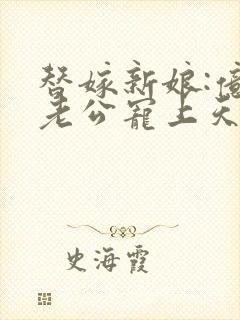 替嫁新娘:億
老公寵上天
史海霞